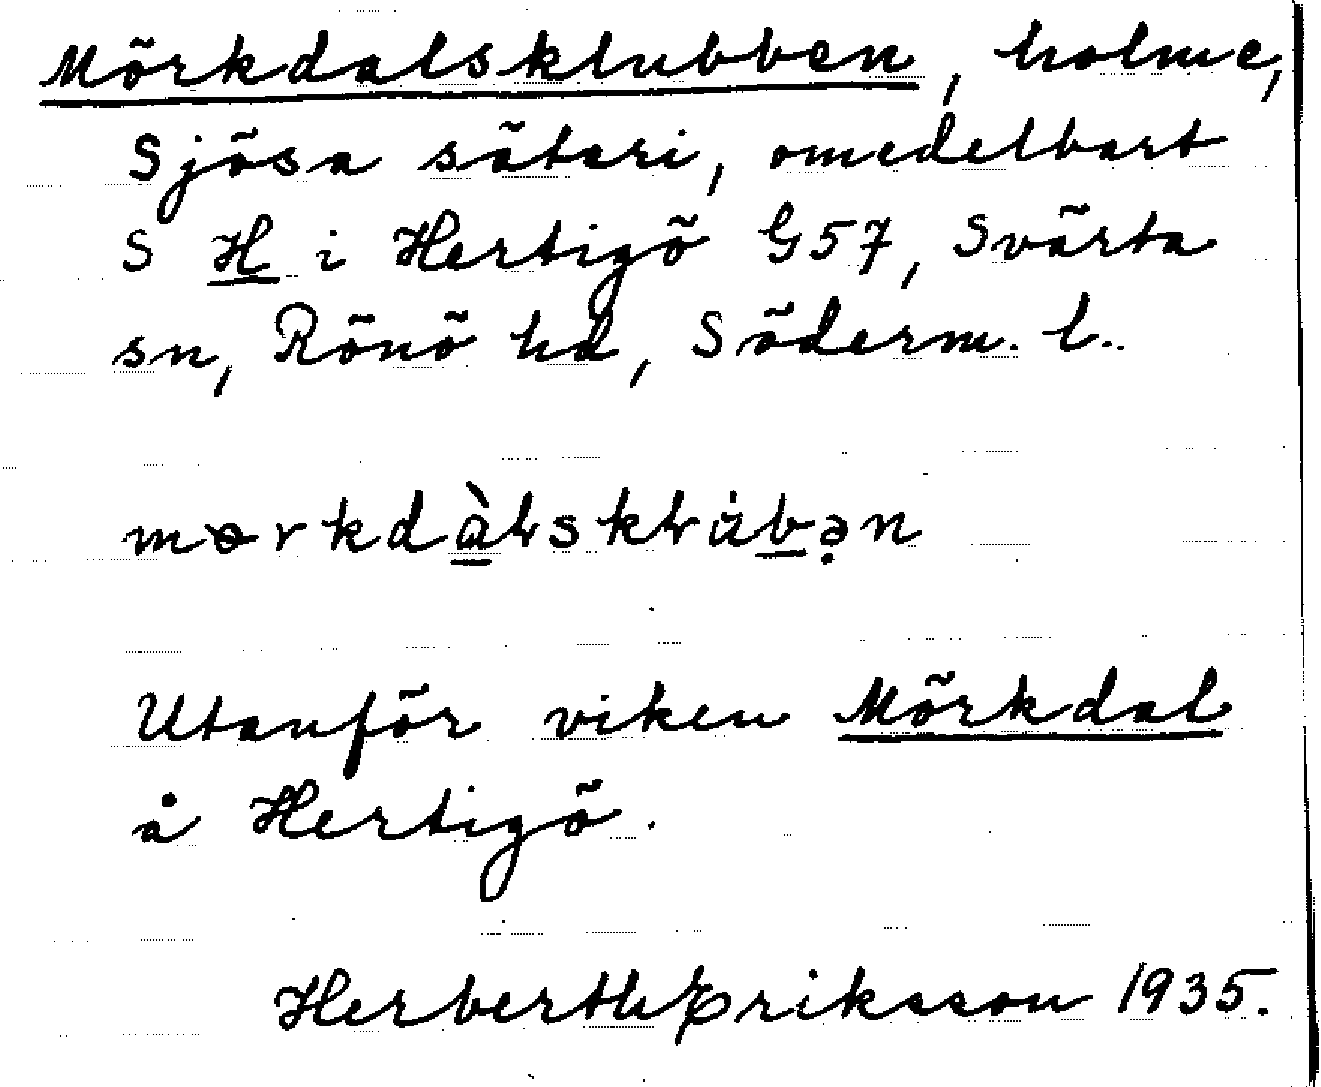 Mörkdalsklubben, holme,
Sjösa säteri, omedelbart
S H i Hertigö G57, Svärta
sn, Rönö hd, Söderm. l..
mɵrkdàlsklu̇bən
Utanför viken Mörkdal
å Hertigö.
Herberth Eriksson 1935.